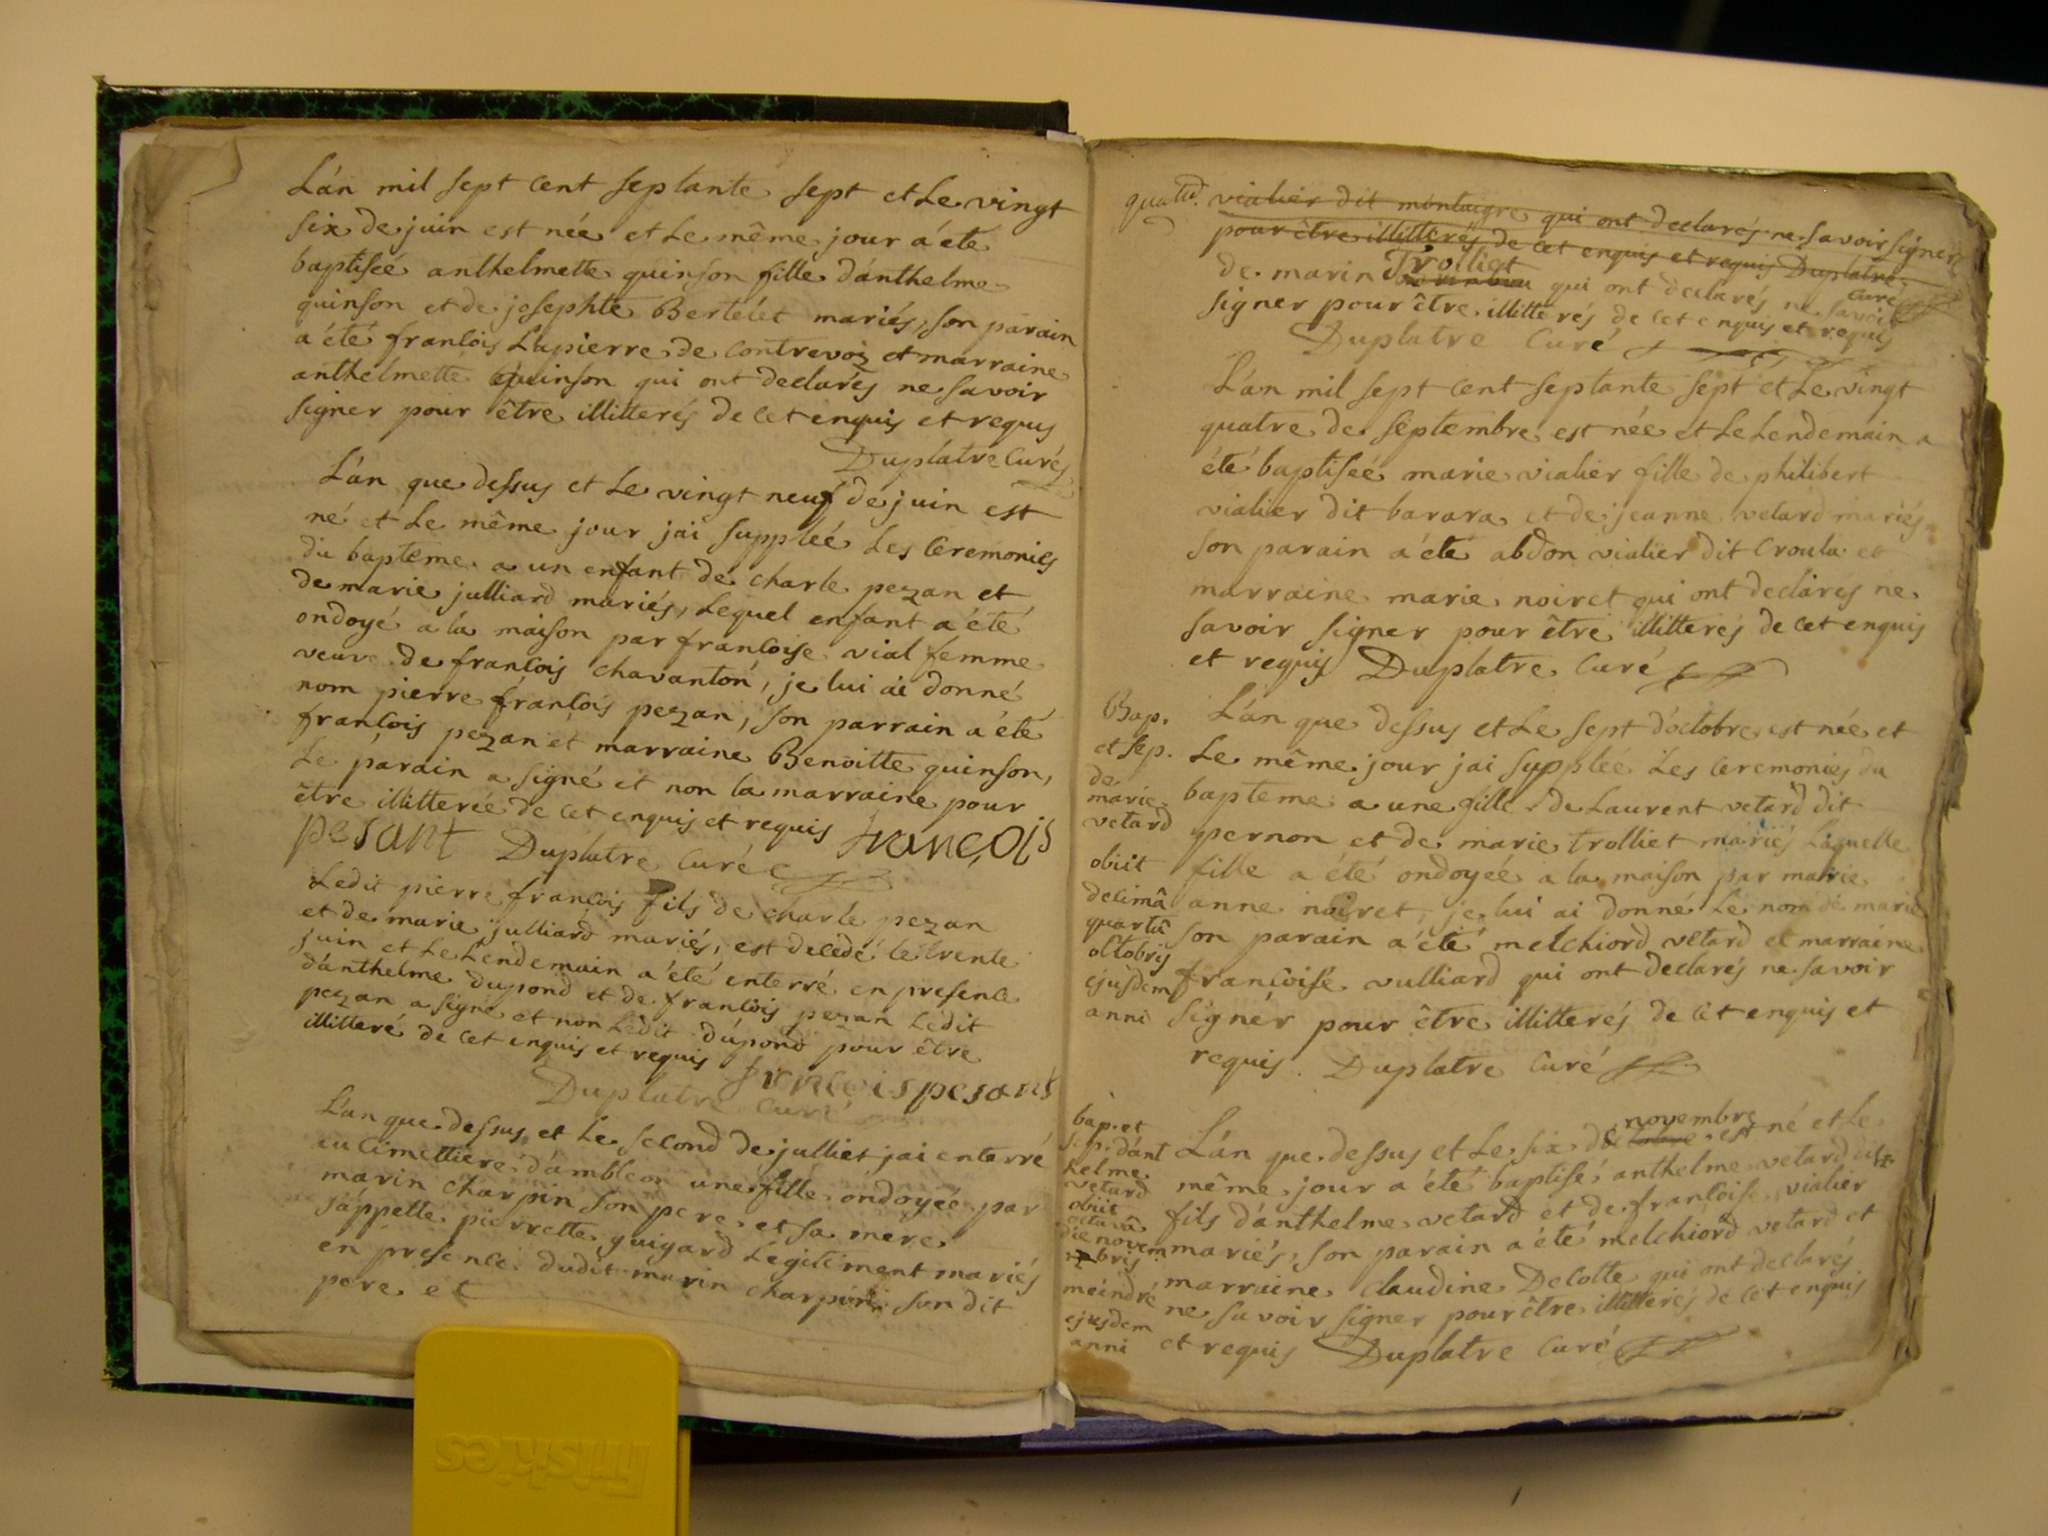 L'an mil sept cent septante sept et Le vingt
six de juin est née et Le même jour a été
baptiseé anthelmette quinson fille d'anthelme
quinson et de josephte Bertelét mariés, son parain
a été francois Lapierre de Contrevoz et marraine
anthelmette quinson qui ont declarés ne savoir
signer pour être illitterés de cet enquis et requis
Duplatre Curés
L'an que dessus et Le vingt neuf de juin est
né et Le même jour jai suppleé Les Ceremonies
du bapteme a un enfant de charle pezan et
de marie julliard mariés, Lequel enfant a été
ondoyé a la maison par francoise vial femme
veuve de francois chavanton, je lui ai donné
nom pierre francois pezan, son parrain a été
francois pezan et marraine Benoitte quinson,
Le parain a signé et non la marraine pour
être illitterée de cet enquis et requis François
pesant Duplatre Curé
Ledit pierre francois fils de charle pezan
et de marie julliard mariés, est decedé le trente
juin et Le Lendemain a été enterré en presence
d'anthelme dupond et de francois pezan Ledit
pezan a signé et non Ledit dupond pour être
illitteré de cet enquis et requis
francois pesant
Duplatre Curé
L'an que dessus et Le second de julliet jai enterré
au Cimettiere d'ambleon une fille ondoyéé par
marin charpin son pere et sa mere
s'appelle pierrette guigard Légitiment mariés
en presence dudit marin charpin son dit
pere et
vialier dit montaigre qui ont declarés ne savoir signer
pour être illitterés de cet enquis et requis Duplatre
Curé
Trolliet
de marin qui ont declarés ne savoir
signer pour être illitterés de cet enquis et requis
Duplatre Curé
L'an mil sept cent septante sept et Le vingt
quatre de septembre est née et Le Lendemain a
été baptiseé marie vialier fille de philibert
vialier dit barara et de jeanne vetard mariés
son parain a été abdon vialier dit Croula et
marraine marie noiret qui ont declarés ne
savoir signer pour être illitterés de cet enquis
et requis Duplatre Curé
Bap.
et sep.
de
marie
vetard
obiit
decimâ
quartâ
octobris
ejusdem
anni
L'an que dessus et Le sept d'octobre est née et
Le même jour jai suppleé Les Ceremonies du
bapteme a une fille de Laurent vetard dit
pernon et de marie trolliet mariés Laquelle
fille a été ondoyeé a la maison par marie
anne noiret, je lui ai donné Le nom de marie
son parain a été melchiord vetard et marraine
françoise vulliard qui ont declarés ne savoir
signer pour être illitterés de cet enquis et
requis. Duplatre Curé
bap. et
sep. d'ant
helme
vetard
obiit
octavâ
die novem
bris
ejusdem
anni
novembre
L'an que dessus et Le six de est né et Le
même jour a été baptisé anthelme vetard
fils d'anthelme vetard et de francoise vialier
mariés, son parain a été melchiord vetard et
marraine claudine Decotte qui ont declarés
ne savoir signer pour être illitterés de cet enquis
et requis Duplatre Curé
friskies